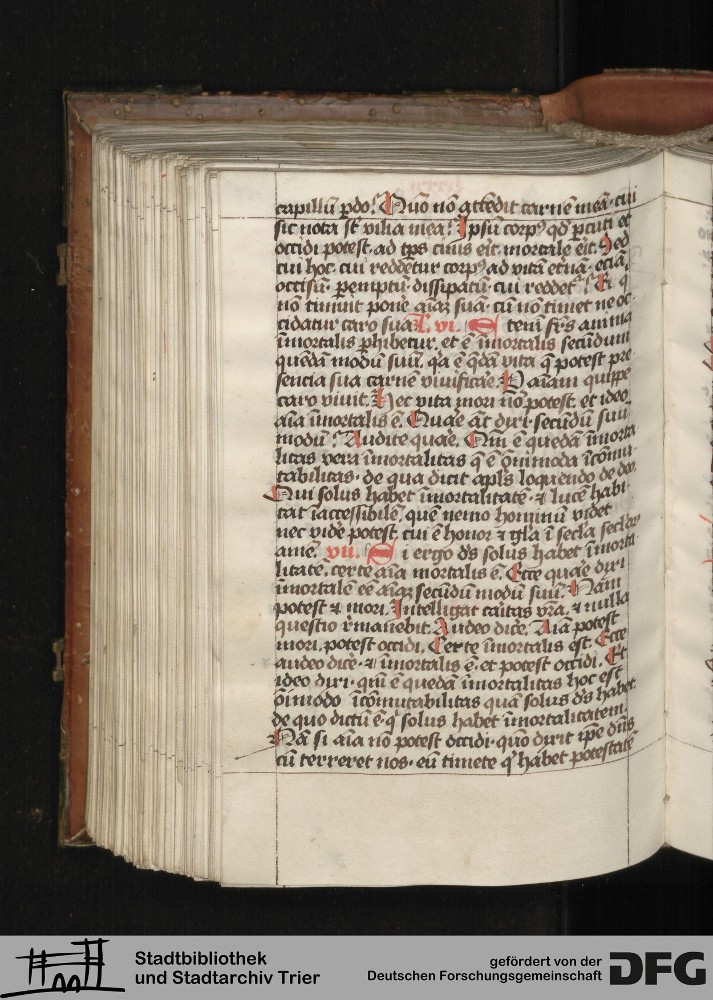 capillū ꝑdo? Quō nō attēdit carnē meā· cui
sic nota st̄ vilia mea? Ipsū corpꝰ qd̄ ꝑcuti et
occidi potest· ad tp̄s cinis eīt· mortale eīt. Sed
cui hoc, cui reddetur corpꝰ ad vitā et̄nā· eciā
occisū· ꝑemptū· dissipatū· cui reddet̄
nō timuit pon̄e aīaꝫ suā· cū nō timet ne oc
cidatur caro sua vi. tenī fr̄s anima
īmortalis ꝓhibetur, et ē īmortalis secūdum
quēdā modū suū, qa ē q̄dā vita q̄ potest pre
sencia sua carnē vivificāe. P aīam quippe
caro vivit. Hec vita mori nō potest. et ideo
aīa īmortalis ē. Quāe āt dixi· secūdū suū
modū? Audite quāe. Qm̄ ē quedā īmorta
litas vera īmortalitas q̄ ē om̄imoda īcōmu
tabilitas· de qua dicit apl̄s loquēdo de deo.
Qui solus habet īmortalitatē· ⁊ lucē habi
tat īaccessibilē, quē nemo hominū videt
nec vidē potest, cui ē honor ⁊ gl̄a ī secla seclōꝝ
amē. vii. Si ergo dˢ solus habet īmorta
litatē. certe aīa mortalis ē. Ecce quāe dixi
īmortalē eē aīaꝫ secūdū modū suū. Nam
potest ⁊ mori. Intelligat caītas vr̄a, ⁊ nulla
questio r̄manebit. Audeo dicē. Aīā potest
mori, potest occidi. Certe īmortalis est. Ecce
audeo dicē· ⁊ īmortalis ē· et potest occidi. Et
ideo dixi· qm̄ ē quedā īmortalitas hoc est
oīmodo īcōmutabilitas quā solus dˢ habet
de quo dictū ē· q̄ solus habet īmortalitatem.
Nā si aīa nō potest occidi· quō dixit ip̄e dn̄s
cū terreret nos· eū timete q̄ habet potestatē
Stadtbibliothek
und Stadtarchiv Trier
gefördert von der
Deutschen Forschungsgemeinschaft
DFG